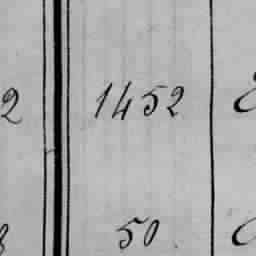 2 1452
50